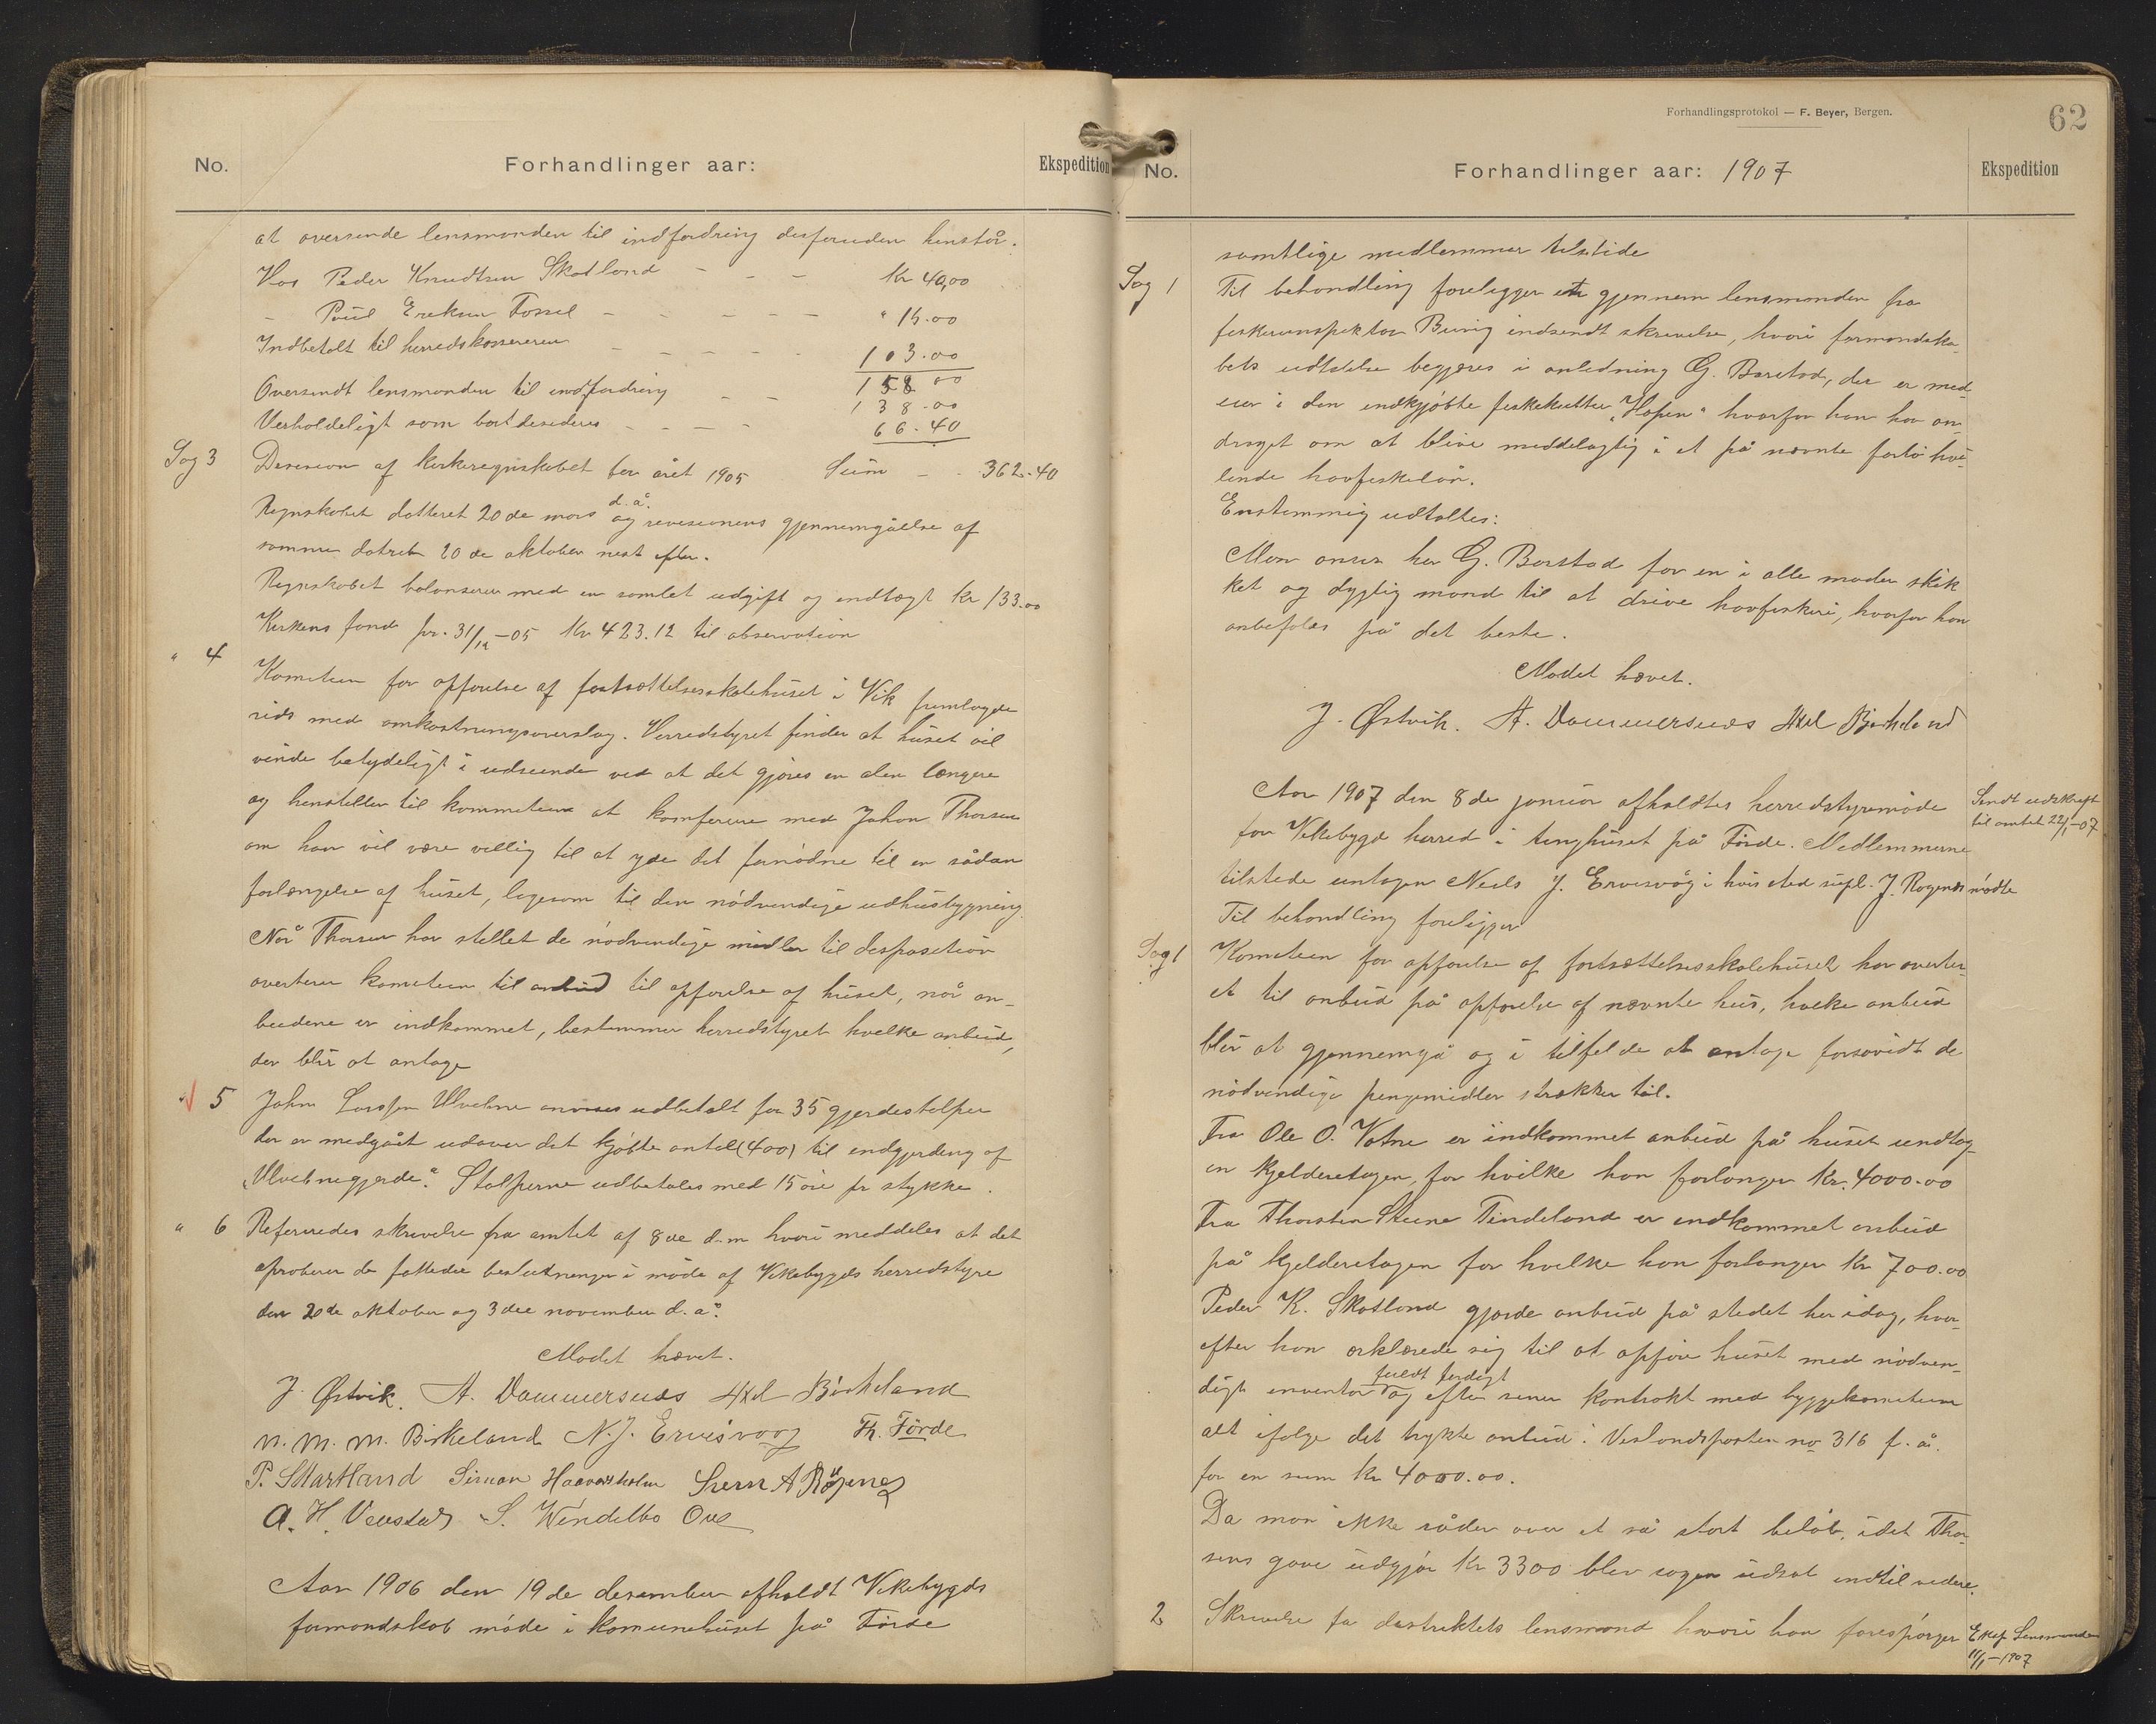 No. Forhandlinger aar: Ekspedition
at oversende lensmanden til indfordring desforuden henstår.
Hos Peder Knudtsen Skotland - - - Kr 40,00
- Poul Eriksen Fossel - - - - - " 15.00
Indbetalt til herredskassereren - - - - - 103.00
158 00
Oversendt lensmanden til indfordring - - 138.00
Verholdeligt som bortdesideres - - - - 66.40
Sag 3 Desesion af kirkeregnskabet for året 1905 Sum - - 362.40
Regnskabet datteret 20de mars d.å. og revesionens gjennemgåelse af
samme datret 20de oktober nest efter.
Regnskabet balanserer med en samlet udgift og indtægt Kr 133.00
Kirkens fond pr. 31/12-05 Kr 423.12 til observation
" 4 Komiteen for opførelse af fortsættelsesskolehuset i Vik fremlagde
rids med omkostningsoverslag. Herredstyret finder at huset vil
vinde betydeligt i udseende ved at det gjøres en alen længere
og henstiller til kommiteen at komferere med Johan Thorsen
om han vil være villig til at yde det fornødne til en sådan
forlængelse af huset, legesom til den nødvendige udhusbygning.
Når Thorsen har stellet de nødvendige midler til desposition
averterer komiteen til anbud til opførelse af huset, når an-
budene er indkommet, bestemmer herredstyret hvelke anbud,
der blir at antage
" 5 John Larsen Ulvebne udbetalt for 35 gjerdestolper
der er medgået udover det kjøbte antal (400) til indgjerding af
"Ulvebnegjerde". Stolperne udbetales med 15 øre pr stykke.
" 6 Refereredes skrivelse fra amtet af 8de d.m hvori meddeles at det
aproberer de fattede beslutninger i møde af Vikebygds herredstyre
den 20de oktober og 3die november d.å.
Mødet hævet.
J. Østvik. A. Dommersnes Axel Birkeland
N. M. M. Birkeland N. J. Ervesvaag Th. Førde
P. Skartland Simon Haavasholm Sivern A Røgenes
A. H. Vevstad S. Wendelbo Ove
Aar 1906 den 19de desember afholdt Vikebygds
formandskab møde i komunehuset på Førde
Forhandlingsprotokol — F. Beyer, Bergen.
62
No. Forhandlinger aar: 1907 Ekspedition
samtlige medlemmer tilstede
Sag 1 Til behandling foreligger en gjennem lensmanden fra
feskerinspektør Buvig indsendt skrivelse, hvori formandska-
bets udtalelse begjæres i anledning G. Barstad, der er med
eier i den indkjøbte feskekutter "Hapen" hvorfor han har an-
draget om at blive meddelagtig i et på nævnte fartøi hvi-
lende havfeskelån.
Enstemmig udtaltes:
Man anser her G. Barstad for en i alle måder skik
ket og dygtig mand til at drive havfeskeri, hvorfor han
anbefales på det beste.
Mødet hævet.
J. Østvik. A. Dommersnes Axel Birkeland
Aar 1907 den 8de januar afholdtes herredstyremøde
for Vikebygd herred i tinghuset på Førde. Medlemmerne
tilstede untagen Neels J. Ervesvåg i hvis sted supl. J. Røgenes mødte
Sendt udskrift
til amtet 22/1-07
Til behandling foreligger
Sag 1 Komiteen for opførelse af fortsættelsesskolehuset har averter-
et til anbud på opførelse af nævnte hus, hvelke anbud
blir at gjennemgå og i tilfelde at antage forsåvidt de
nødvendige pengemidler strækker til.
Fra Ole O. Vatne er indkommet anbud på huset undtag-
en kjelderetagen, for hvilke han forlanger Kr. 4000.00
Fra Thorsten Steene Tindeland er indkommet anbud
på kjelderetagen for hvelke han forlanger Kr 700.00
Peder K. Skotland gjorde anbud på stedet her idag, hvor-
efter han erklærede sig til at opføre huset med nødven-
digt inventar fuldt ferdigt og efter senere kontrakt med byggekomiteen
alt ifølge det trykte anbud i Vestlandsposten no 316 f.å.
for en sum Kr 4000.00.
Da man ikke råder over et så stort beløb, idet Thor-
sens gave udgjør Kr 3300 blev sagen udsat indtil videre.
2 Skrivelse fra destriktets lensmand hvori han forespørger
Eksp Lensmanden
11/1-1907